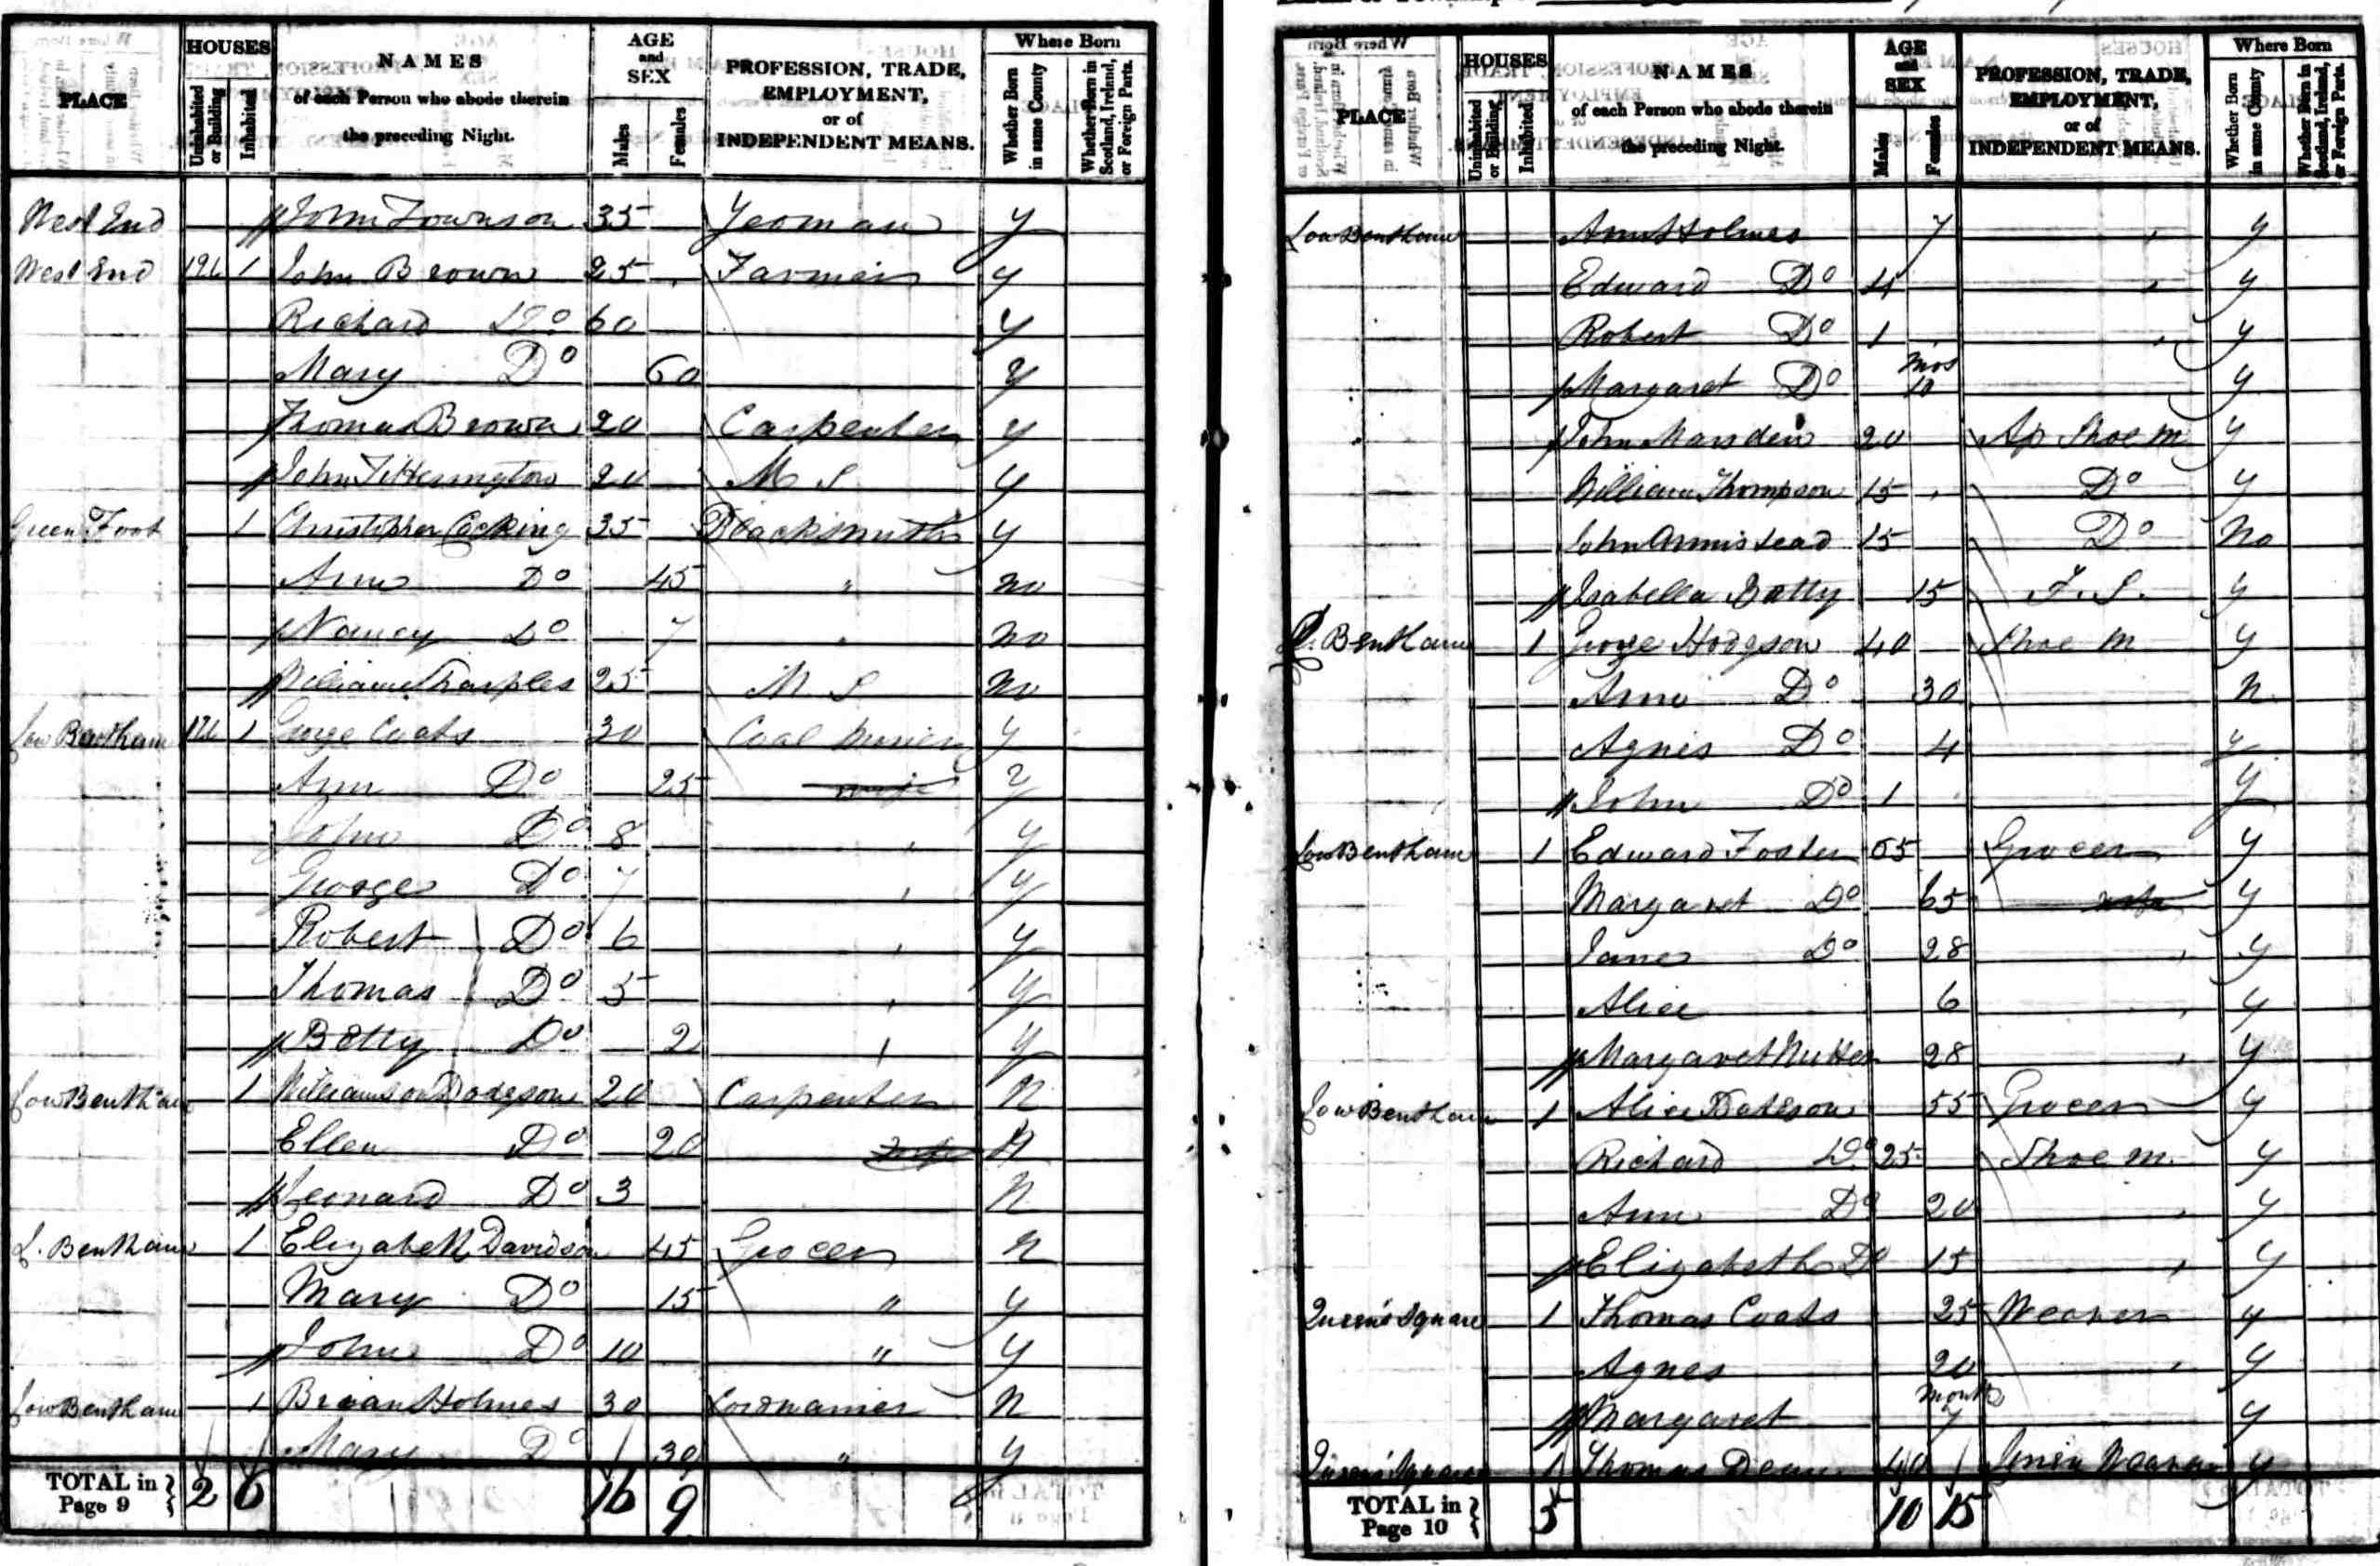 PLACE
HOUSES
Uninhabited or Building
Inhabited
NAMES
of each Person who abode therein
the preceding Night.
AGE and SEX
Males
Females
PROFESSION, TRADE,
EMPLOYMENT,
or of
INDEPENDENT MEANS.
Where Born
Whether Born in same County
Whether Born in Scotland, Ireland, or Foreign Parts.
West End John Townson 35 Yeoman y
West End 1 1 John Brown 25 Farmer y
Richard Do 60 y
Mary Do 60 y
Thomas Brown 20 Carpenter y
John Titterington 20 M S y
Green Foot 1 Christopher Cocking 35 Blacksmith y
Ann Do 45 " no
Nancy Do 7 " no
William Sharples 25 M S no
Low Bentham 1 1 George Coats 30 Coal Miner y
Ann Do 25 wife y
John Do 8 y
George Do 7 y
Robert Do 6 y
Thomas Do 5 y
Betty Do 2 y
Low Bentham 1 Williamson Dodgson 20 Carpenter N
Ellen Do 20 wife N
Leonard Do 3 N
L. Bentham 1 Elizabeth Davidson 45 Grocer N
Mary Do 15 " y
John Do 10 " y
Low Bentham 1 Brian Holmes 30 Cordwainer N
Mary Do 30 " y
TOTAL in Page 9 } 2 6 16 9
PLACE
HOUSES
Uninhabited or Building
Inhabited
NAMES
of each Person who abode therein
the preceding Night.
AGE and SEX
Males
Females
PROFESSION, TRADE,
EMPLOYMENT,
or of
INDEPENDENT MEANS.
Where Born
Whether Born in same County
Whether Born in Scotland, Ireland, or Foreign Parts.
Low Bentham Ann Holmes 7 y
Edward Do 4 y
Robert Do 1 y
Margaret Do mos 10 y
John Marsden 20 Ap Shoe m y
William Thompson 15 Do y
John Armistead 15 Do No
Isabella Batty 15 F. S. y
L. Bentham 1 George Hodgson 40 Shoe m y
Ann Do 30 n
Agnes Do 4 y
John Do 1 y
Low Bentham 1 Edward Foster 65 Grocer y
Margaret Do 65 wife y
Jane Do 28 y
Alice 6 y
Margaret Nutter 28 y
Low Bentham 1 Alice Bateson 55 Grocer y
Richard Do 25 Shoe m. y
Ann Do 20 y
Elizabeth Do 15 y
Queen's Square 1 Thomas Coats 25 Weaver y
Agnes 20 y
Margaret months 7 y
Queen's Square 1 Thomas Dean 40 Linen Weaver y
TOTAL in Page 10 } 5 10 15